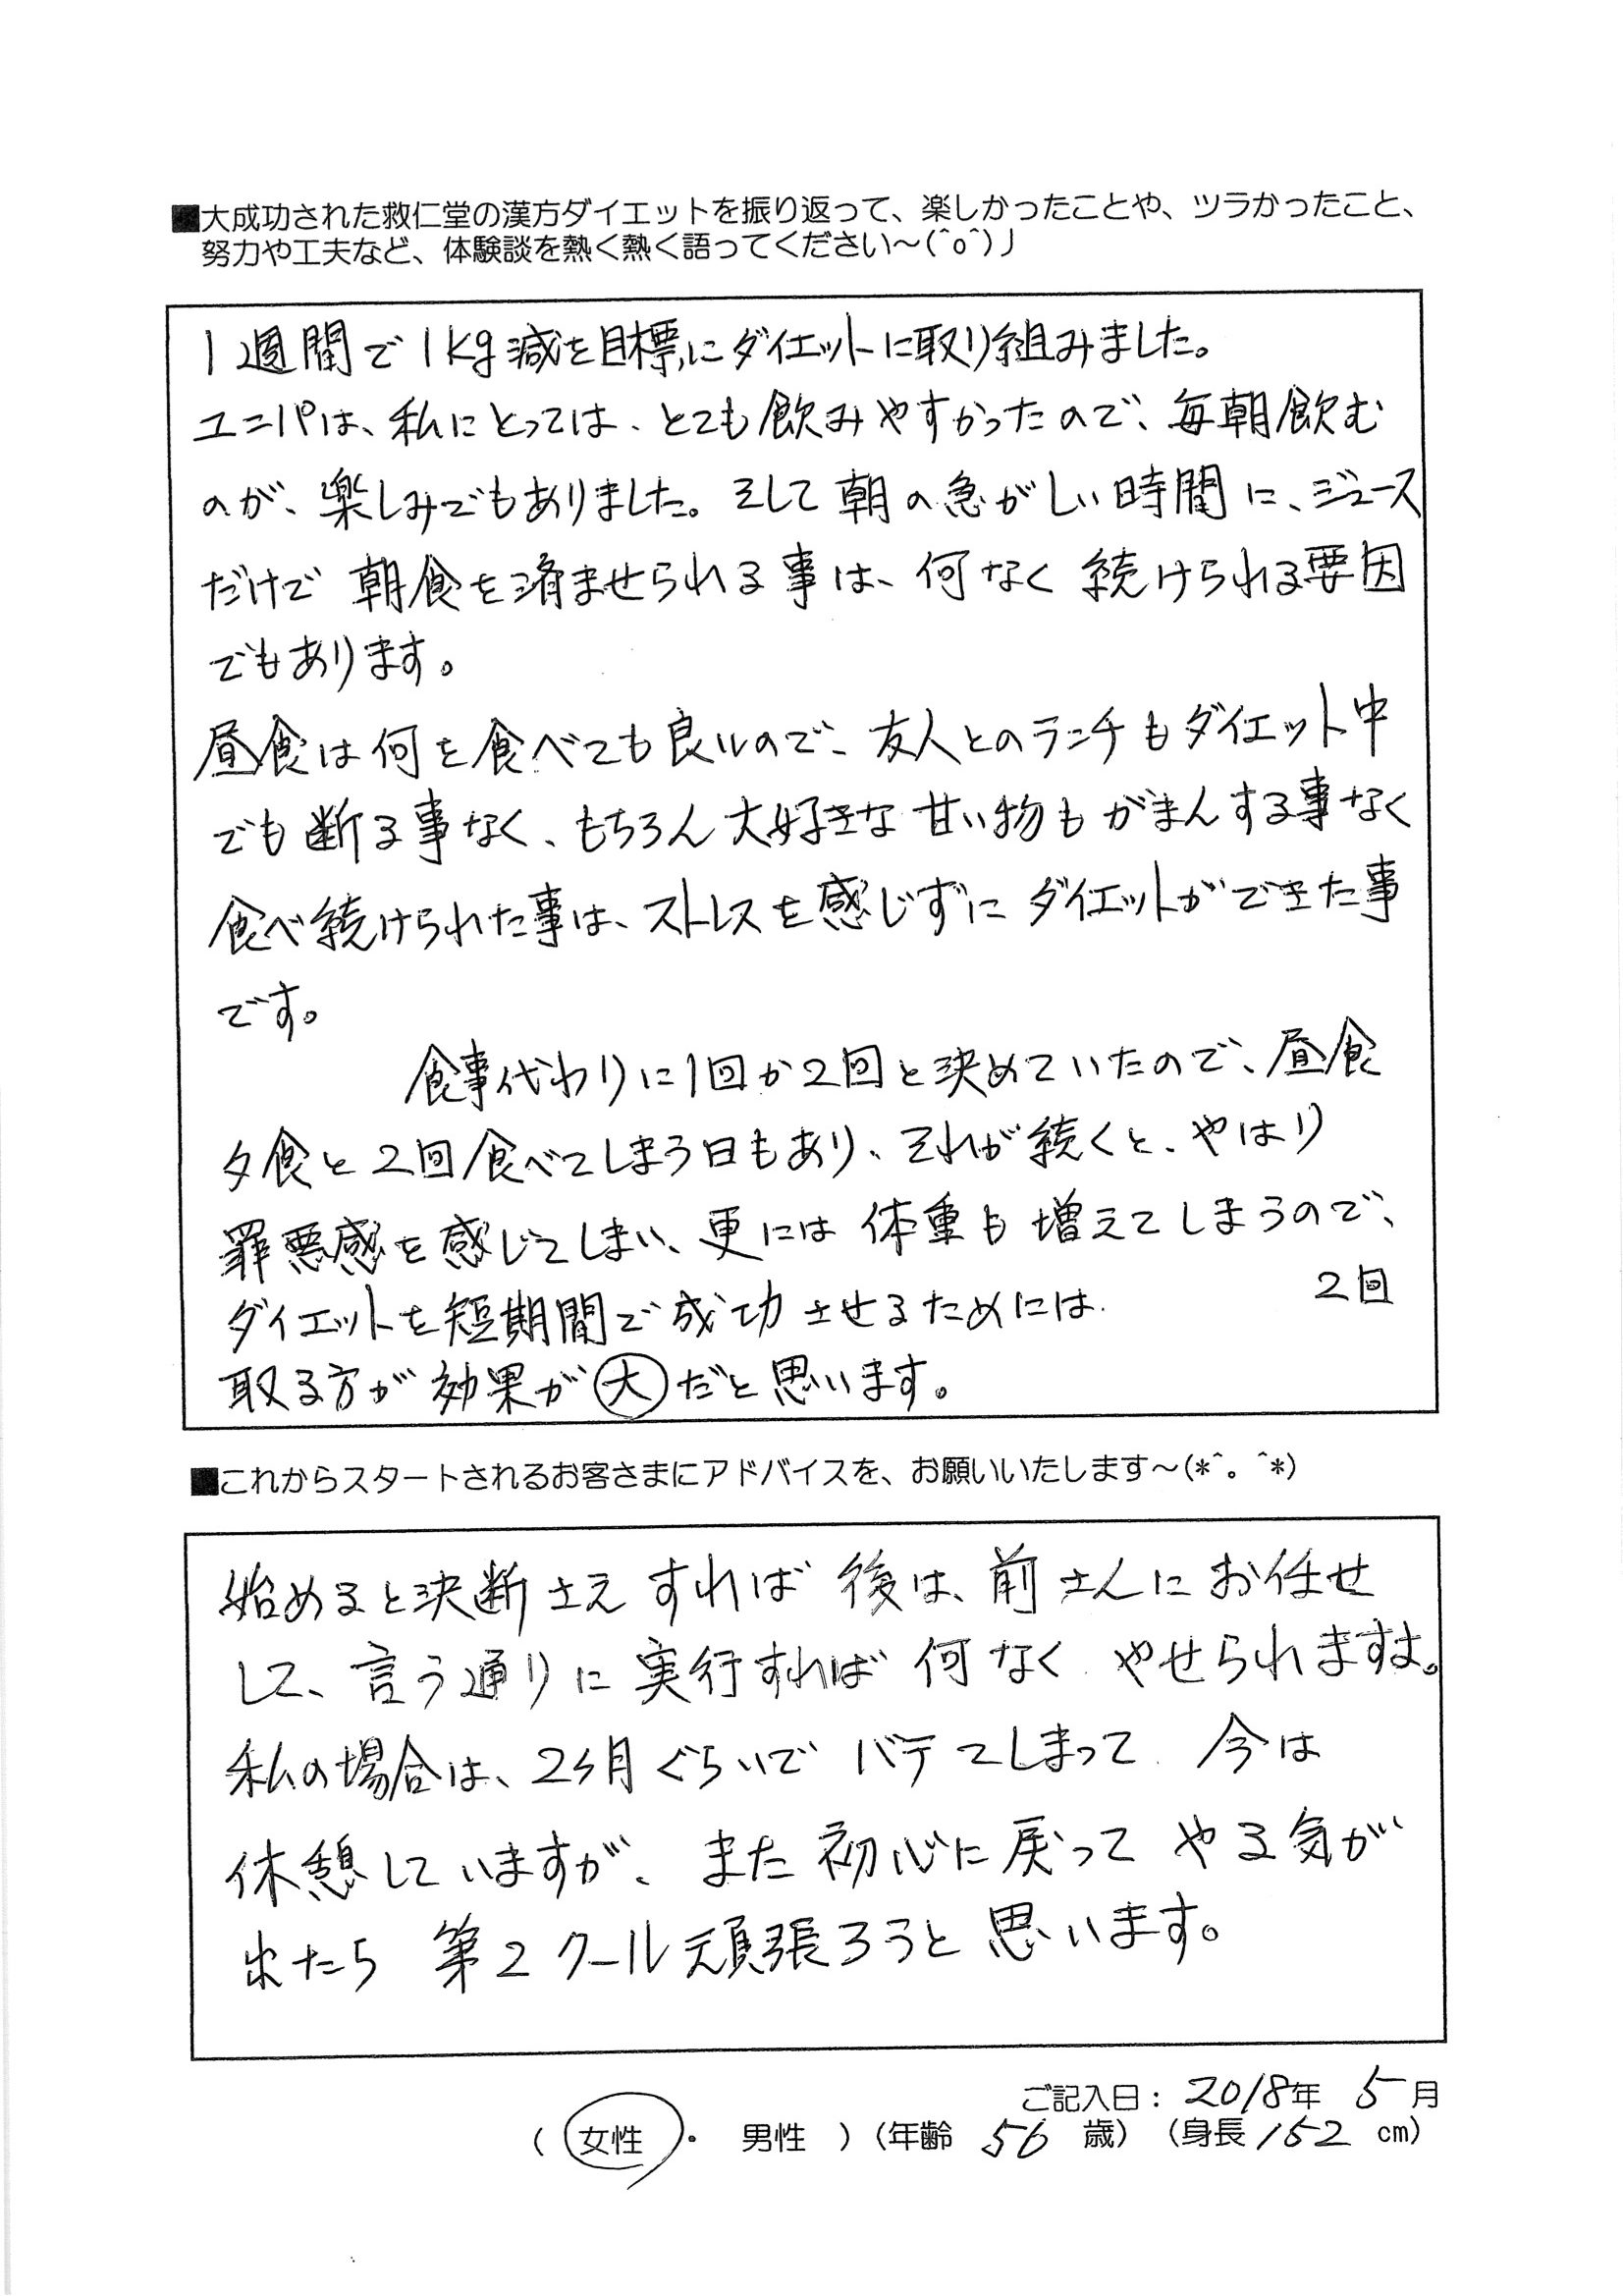 ■大成功された救仁堂の漢方ダイエットを振り返って、楽しかったことや、ツラかったこと、
努力や工夫など、体験談を熱く熱く語ってください～(^o^)丿
1週間で1kg減を目標にダイエットに取り組みました。
ユニパは、私にとっては、とても飲みやすかったので、毎朝飲む
のが、楽しみでもありました。そして朝の急がしい時間に、ジュース
だけで朝食を済ませられる事は、何なく続けられる要因
でもあります。
昼食は何を食べても良いので、友人とのランチもダイエット中
でも断る事なく、もちろん大好きな甘い物もがまんする事なく
食べ続けられた事は、ストレスを感じずにダイエットができた事
です。
食事代わりに1回か2回と決めていたので、昼食
夕食と2回食べてしまう日もあり、それが続くと、やはり
罪悪感を感じてしまい、更には体重も増えてしまうので、
ダイエットを短期間で成功させるためには、 2回
取る方が効果が大だと思います。
■これからスタートされるお客さまにアドバイスを、お願いいたします～(*^。^*)
始めると決断さえすれば後は、前さんにお任せ
して、言う通りに実行すれば何なく、やせられますよ。
私の場合は、2ヶ月ぐらいでバテてしまって、今は
休憩していますが、また初心に戻ってやる気が
出たら第2クール頑張ろうと思います。
ご記入日：2018年 5月
（ 女性 ・ 男性 ）（年齢 56 歳）（身長 152 cm）